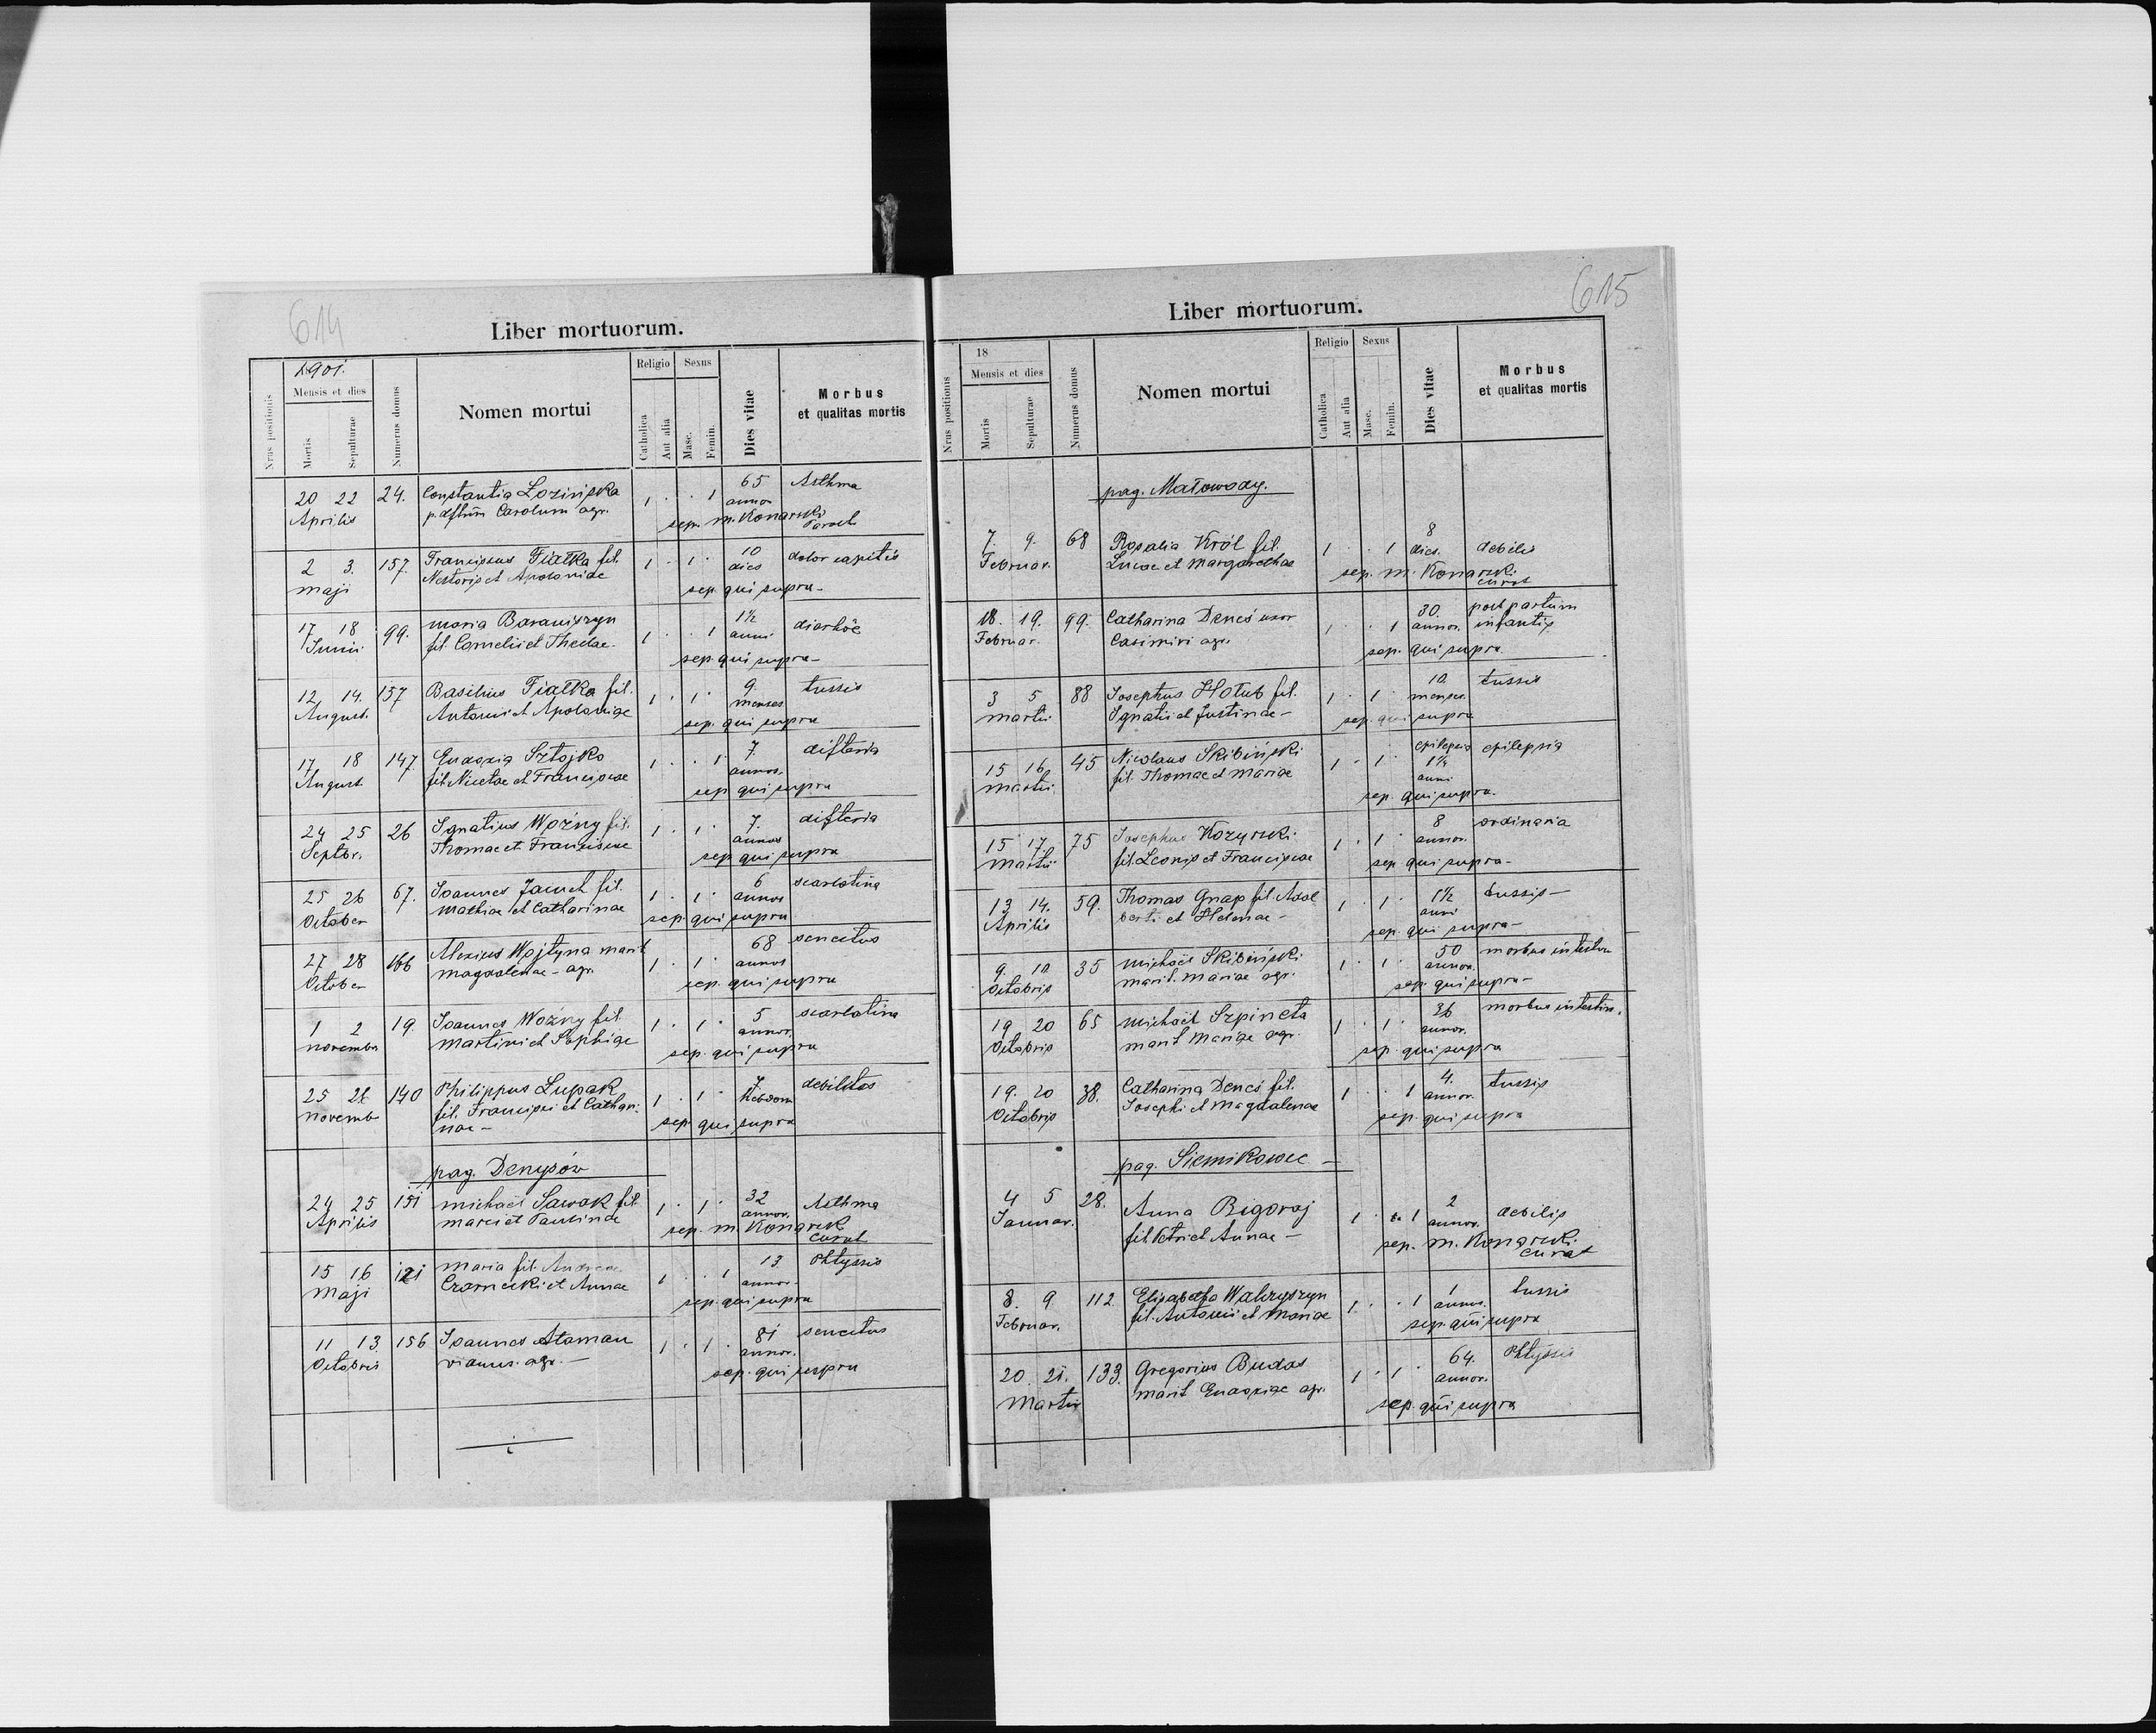 614
Liber mortuorum.
1901.
Nrus positionis
Mensis et dies
Mortis
Sepulturae
Numerus domus
Nomen mortui
Religio
Catholica
Aut alia
Sexus
Masc.
Femin.
Dies vitae
Morbus
et qualitas mortis
20 22 24. Constantia Lozińska 1 . . 1 65 Asthma
Aprilis p. dftum Carolum agr. annor
sep. M. Konarski
Paroch
2 3. 157. Franciscus Fiałka fil. 1 . 1 . 10 dolor capitis
Maji Nestoris et Apoloniae dies
sep. qui supra -
17 18 99. Maria Baraniszyn 1 . . 1 1½ diarhöe
Junii fil. Cornelii et Theclae anni
sep. qui supra -
12 14. 157 Basilius Fiałka fil. 1 . 1 . 9. tussis
August. Antonii et Apoloniae menses
sep. qui supra
17 18 147 Eudoxia Sztojko 1 . . 1 7. difteria
August. fil. Nicetae et Franciscae annos.
sep qui supra
24 25 26 Ignatius Woźny fil. 1 . 1 . 7. difteria
Septbr. Thomae et Franciscae annos
sep qui supra
25 26 67. Joannes Jamch fil. 1 . 1 . 6 scarlatina
October Mathiae et Catharinae annos
sep. qui supra
27 28 166 Alexius Wojtyna marit 1 . 1 . 68 senectus
October Magdalenae - agr. annos
sep. qui supra
1 2 19 Joannes Woźny fil. 1 . 1 . 5 scarlatina
November Martini et Sophiae annor.
sep. qui supra
25 140 Philippus Lupak 1 . 1 . 7. debilitas
Novemb fil. Francisci et Cathari- Hebdom
nae -
sep. qui supra
pag. Denysów
24 25 151 Michael Sawak fil. 1 . 1 . 32 Asthma
Aprilis Marci et annor.
sep. M. Konarsk
Curat
15 16 121 Maria fil. Andreae 1 . . 1 13. Phtyssis
Maji Czarnecki et Annae annor -
sep. qui supra
11 13. 156 Joannes Ataman 1 . 1 . 81 senectus
Octobris viduus. agr. - annor.
sep. qui supra
615
Liber mortuorum.
18
Nrus positionis
Mensis et dies
Mortis
Sepulturae
Numerus domus
Nomen mortui
Religio
Catholica
Aut alia
Sexus
Masc.
Femin.
Dies vitae
Morbus
et qualitas mortis
pag. Małowody.
7. 9. 68 Rosalia Król fil. 1 . . 1 8 debilis
Februar. Lucae et Margarethae dies.
sep. M. Konarski
curat
18. 19. 99. Catharina Deneś uxor 1 . . 1 30. post partum
Februar. Casimiri agr. annor. infantis
sep. qui supra
3 5 88 Josephus Hołub fil. 1 . 1 . 10. tussis
Martii Ignatii et Justinae - menses.
sep. qui supra
15 16 45 Nicolaus Skibiński 1 . 1 . epilepsia epilepsia
Martii. fil. Thomae et Mariae anni
sep. qui supra.
15 17. 75 Josephus Kozyrski 1 . 1 . 8 ordinaria
Martii fil. Leonis et Franciscae annor.
sep. qui supra -
13 14. 59. Thomas Gnap fil. Adal 1 . 1 . 1½ tussis -
Aprilis berti et Helenae - anni
sep. qui supra -
9. 10. 35 Michael Skibiński 1 . 1 . 50 morbus intestin
Octobris marit. Mariae agr. annor.
sep. qui supra -
19 20 65 Michael Szpineta 1 . 1 . 36 morbus intestin.
Octobris marit Mariae agr. annor.
sep. qui supra
19. 20 38. Catharina Deneś fil. 1 . . 1 4. tussis
Octobris Josephi et Magdalenae annor.
sep. qui supra
pag. Siemikowce -
4 5 28. Anna Rogoraj 1 . 1 2 debilis
Januar. fil. Petri et Annae - annor.
sep. M. Konarski
curat
8. 9 112 Elisabetha Wawryszyn 1 . . 1 1 tussis
Februar. fil. Antonii et Mariae annus.
sep. qui supra
20. 21. 133. Gregorius Budas 1 . 1 . 64. Phtyssis
Martii marit Eudoxiae agr. annor.
sep. qui supra